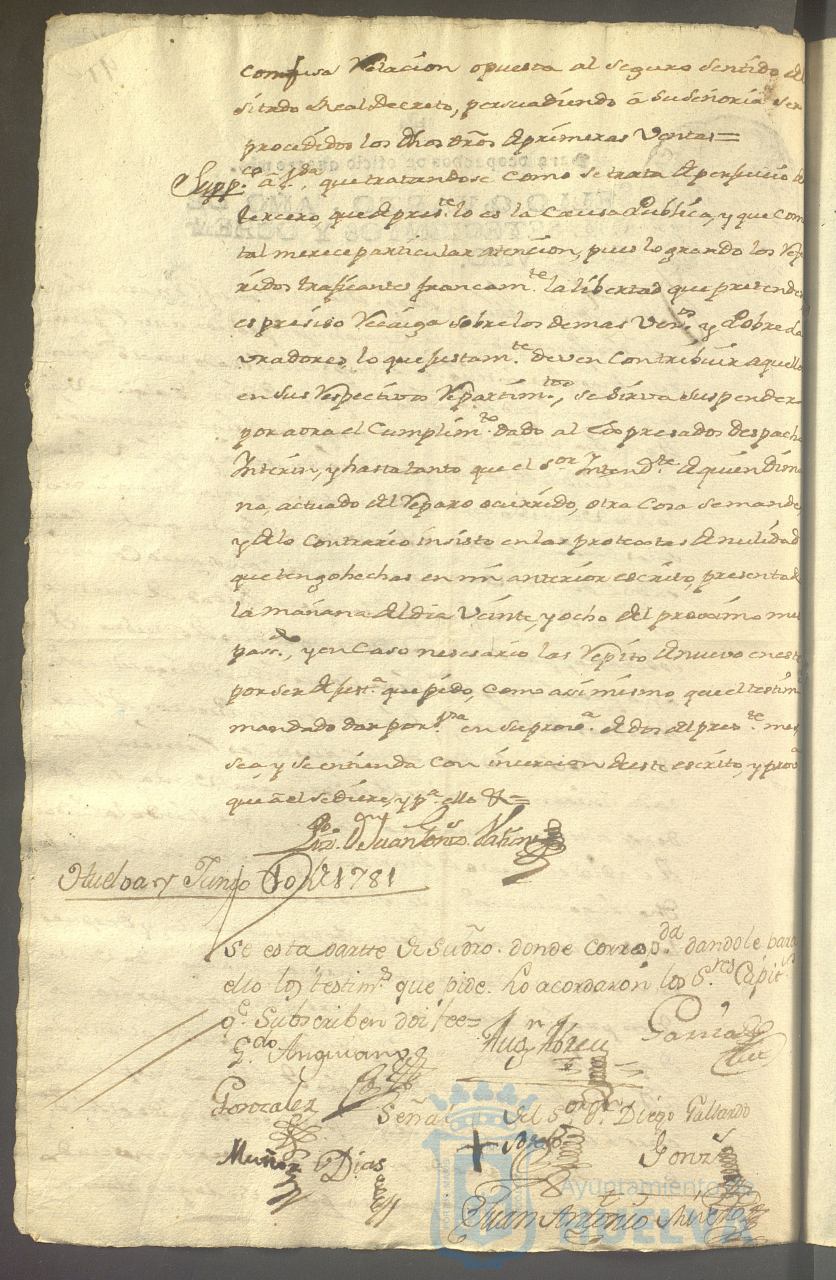 confusa Relacion opuesta al seguro sentido del
sitado Real Decreto, persuadiendo á su señoria ser
procedidos los dhos dros de primeras ventas=
Suppco. á V.Sda., que tratandose como se trata de perjuicio de
tercero que de preste. lo es la Causa Publica, y que como
tal merece particular atencion, pues logrando los Refe
ridos traficantes francamte. la libertad que pretenden
es presiso recaiga sobre los demas Venos. y Pobres La
vradores, lo que justamte. deven contribuir aquellos
en sus Respectivos Repartimtos., se sirva suspender
por aora el Cumplimto. dado al Expresado despacho
Interin, y hasta tanto que el Sor. Intendte. de quien dima
na, actuado del Reparo ocurrido, otra cosa se mande,
y de lo contrario insisto en las protestas de nulidad
que tengo hechas en mi anterior escrito, presentado
la mañana del dia Veinte, y ocho del proximo mes
passdo., y en Caso necesario las Repito de nuevo en este
por ser de justa. que pido, como asimismo que el testim
mandado dar por V.Sda. en su prova. de dos del preste. mes
sea, y se entienda con incercion de este escrito, y prova.
que á el se diere, y pa. ello &=
Lizdo. Dn. Juan
Huelva y Junio 10 de 1781
se esta partte de su dro. donde correspda. dandole para
ello los testimos. que pide. Lo acordaron los Sres. Capitres.
qe. Subscriben doi fee=
Gdo. Anguiano
Abreu
Garcia
Gonzalez
Señal del Sor. Dn. Diego Gallardo
Muñoz
Dias
+
Gonzs
Juan Antonio
Ayuntamiento de
HUELVA